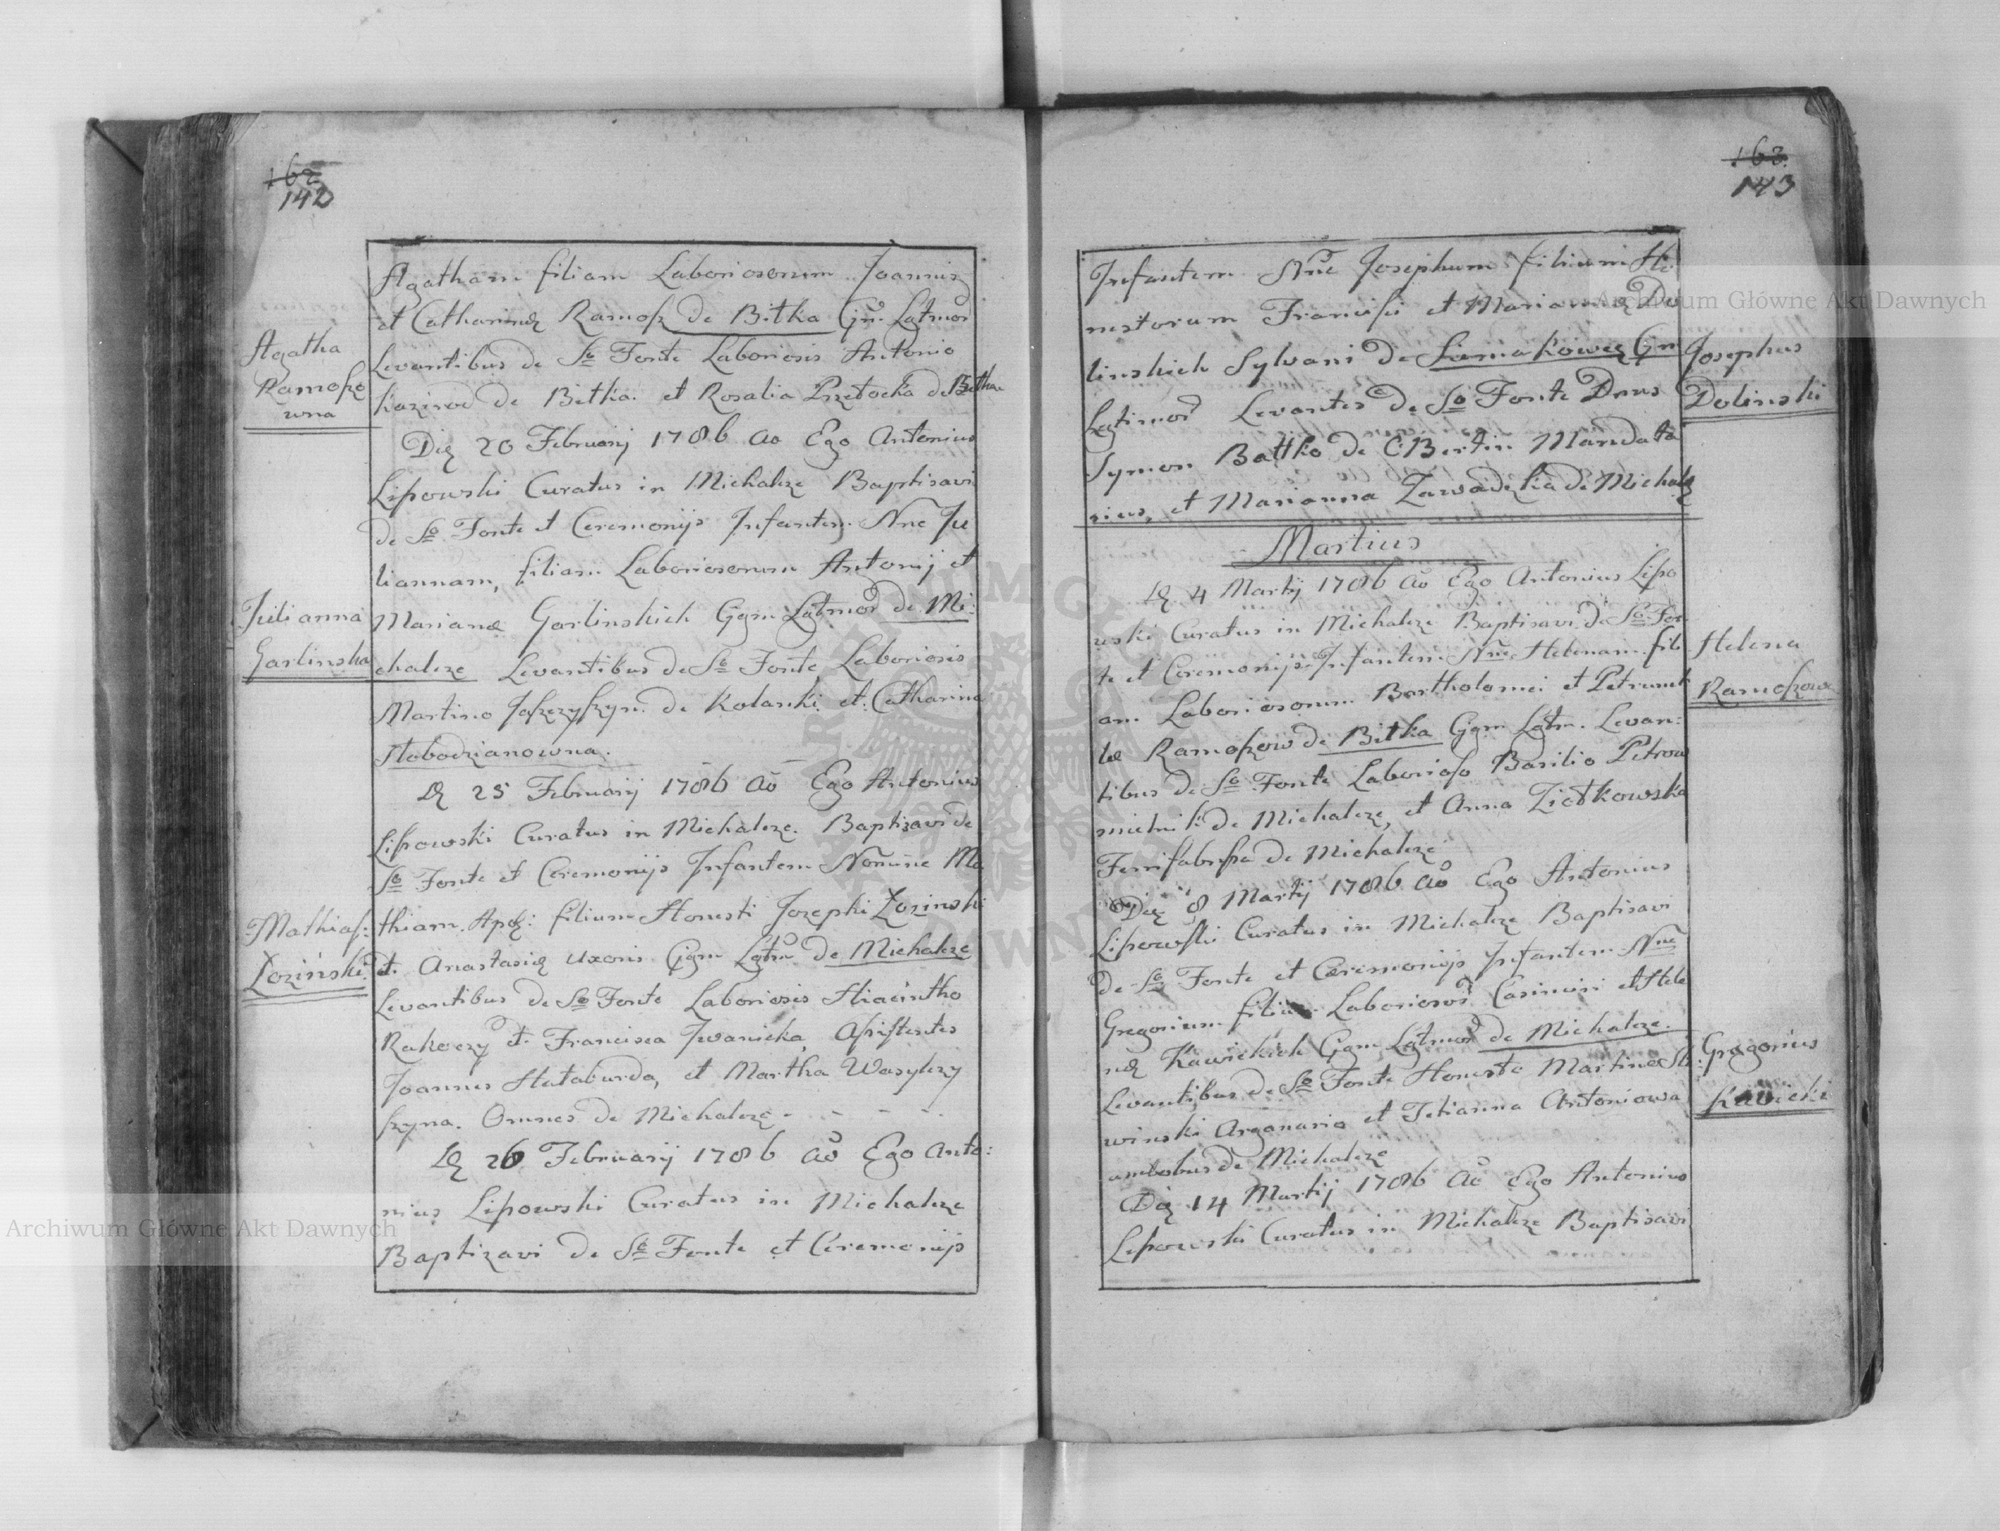 162.
142
Agatham filiam Laboriosorum Joannis
et Catharinæ Ramosz de Bitka Gm Lgtmor
Levantibus de So Fonte Laboriosis Antonio
de Bitka. et Rosalia de Bitka
Agatha
Ramoszo
wna
Die 20 Februarij 1786 ao Ego Antonius
Lipowski Curatus in Michalcze Baptisavi
de So Fonte et Ceremonijs Infantem Nne Ju
liannam, filiam Laboriosorum Antonij et
Marianæ Garlinskich Ggm Lgtmor de Mi:
chalcze Levantibus de So Fonte Laboriosis
Martino de Kolanki et Catharina
Słobodzianowna.
Julianna
Garlinska
D 25 Februarij 1786 ao Ego Antonius
Lipowski Curatus in Michalcze. Baptizavi de
So Fonte et Ceremonijs Infantem Nomine Ma
thiam. Apł: filium Honesti Jozephi Łozinski
et Anastasiæ Uxoris Ggm Lgtm de Michalcze
Levantibus de So Fonte Laboriosis Hiacintho
Rakoczy et Francisca Iwanicka, Assistentes
Joannes Hutaburda, et Martha Wasylczy
szyna. Omnes de Michalcze - - - -
Mathias:
Łoziński
D 26 Februarij 1786 ao Ego Anto:
nius Lipowski Curatus in Michalcze
Baptizavi de So Fonte et Ceremonijs
162.
143
Infantem Nne Josephum filium Ho
nestorum Francisci et Mariannæ Do
linskich Sylvani de Siemakowce Gm
Lgtimor Levantes de So Fonte Dnus
Symon Battko de Mandata
rius, et Marianna de Michalcz
Josephus
Dolinski
Martius
D 4 Martij 1786 ao Ego Antonius Lipo
wski Curatus in Michalcze Baptisavi de So Fon
te et Ceremonijs Infantem Nne Helenam fili
am Laboriosorum Bartholomei et Petrunel
læ Ramoszow de Bitka Ggm Lgtm. Levan:
tibus de So Fonte Laborioso Basilio Petrow
mielnik de Michalcze, et Anna Ziołkowska
de Michalcze
Helena
Ramoszow
Die 8 Martij 1786 ao Ego Antonius
Lipowski Curatus in Michalcze Baptisavi
de So Fonte et Ceremonijs Infantem Nne
Gregorium filium Laborioso Casimiri et Hele
næ Kawickich Ggm Lgtmor de Michalcze.
Levantibus de So Fonte Honesto Martino Sła:
winski Organario et Tetianna Antoniowa
ambobus de Michalcze
Gregorius
Kawicki
Die 14 Martij 1786 ao Ego Antonius
Lipowski Curatus in Michalcze Baptisavi
Archiwum Główne Akt Dawnych
Archiwum Główne Akt Dawnych